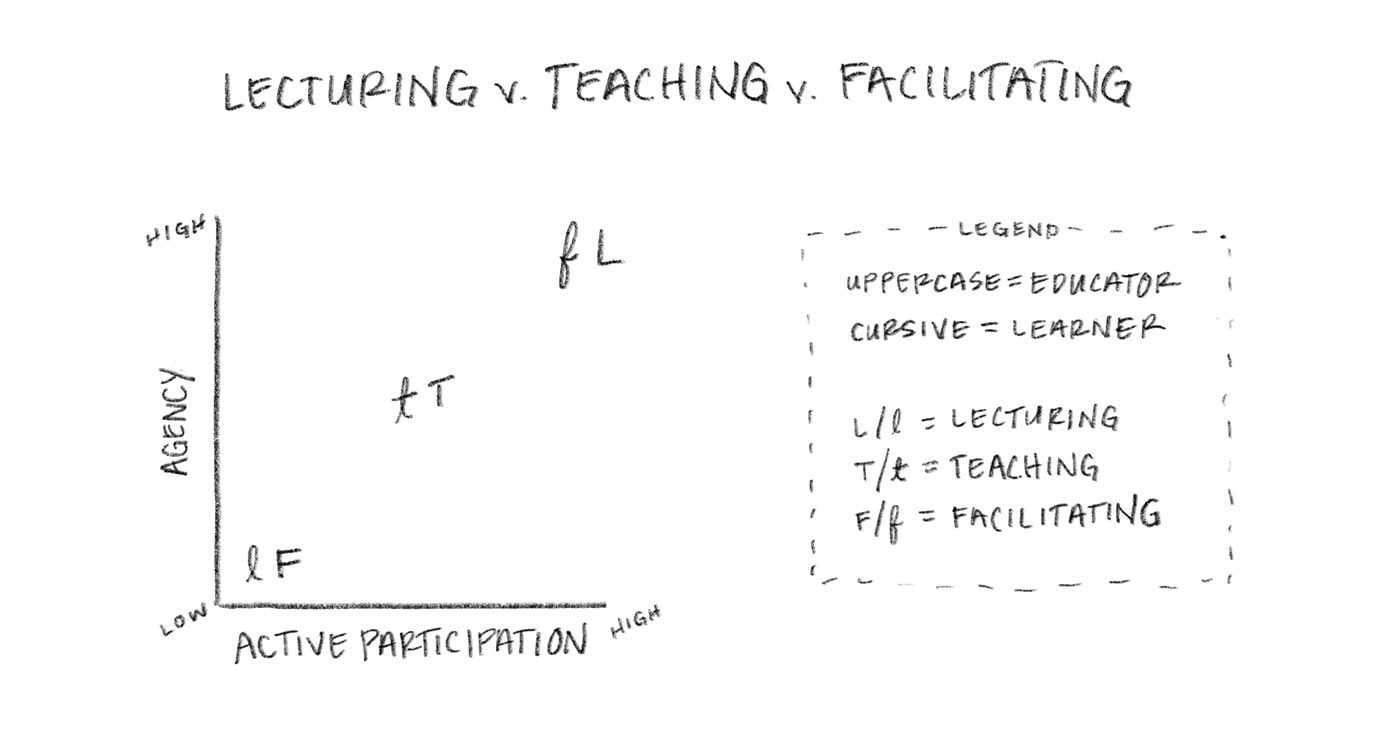 LECTURING v. TEACHING v. FACILITATING
HIGH
f L
t T
AGENCY
l F
LOW
ACTIVE PARTICIPATION
HIGH
LEGEND
UPPERCASE = EDUCATOR
CURSIVE = LEARNER
L/l = LECTURING
T/t = TEACHING
F/f = FACILITATING